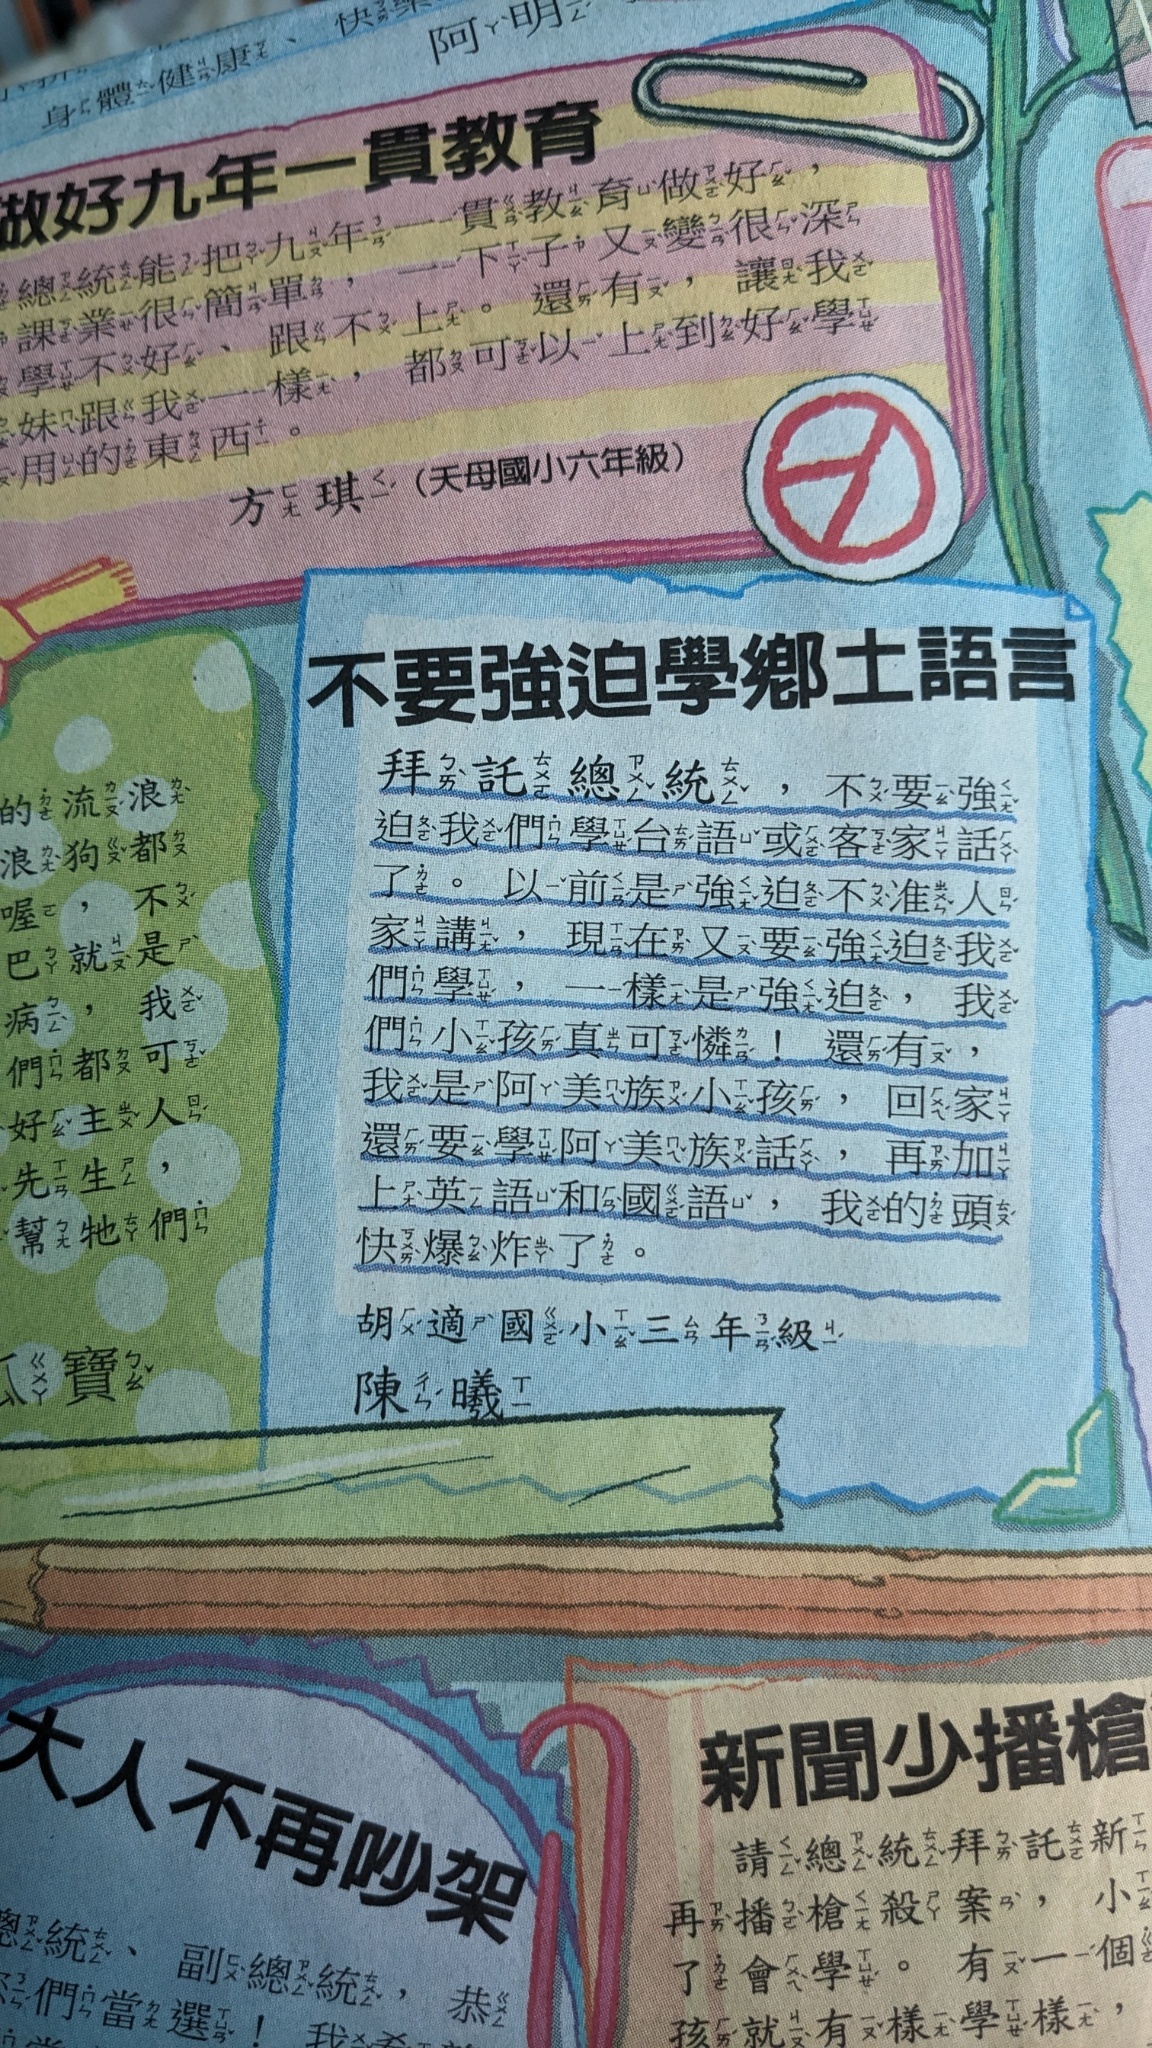 身體健康、快樂
阿明
做好九年一貫教育
總統能把九年一貫教育做好，
課業很簡單，一下子又變很深
學不好、跟不上。還有，讓我
妹跟我一樣，都可以上到好學
用的東西。
方琪（天母國小六年級）
不要強迫學鄉土語言
拜託總統，不要強
迫我們學台語或客家話
了。以前是強迫不准人
家講，現在又要強迫我
們學，一樣是強迫，我
們小孩真可憐！還有，
我是阿美族小孩，回家
還要學阿美族話，再加
上英語和國語，我的頭
快爆炸了。
胡適國小三年級
陳曦
的流浪
浪狗都
喔，不
巴就是
病，我
們都可
好主人
先生，
幫牠們
瓜寶
大人不再吵架
總統、副總統，恭
們當選！我希
新聞少播槍
請總統拜託新
再播槍殺案，小
了會學。有一個
孩就有樣學樣，